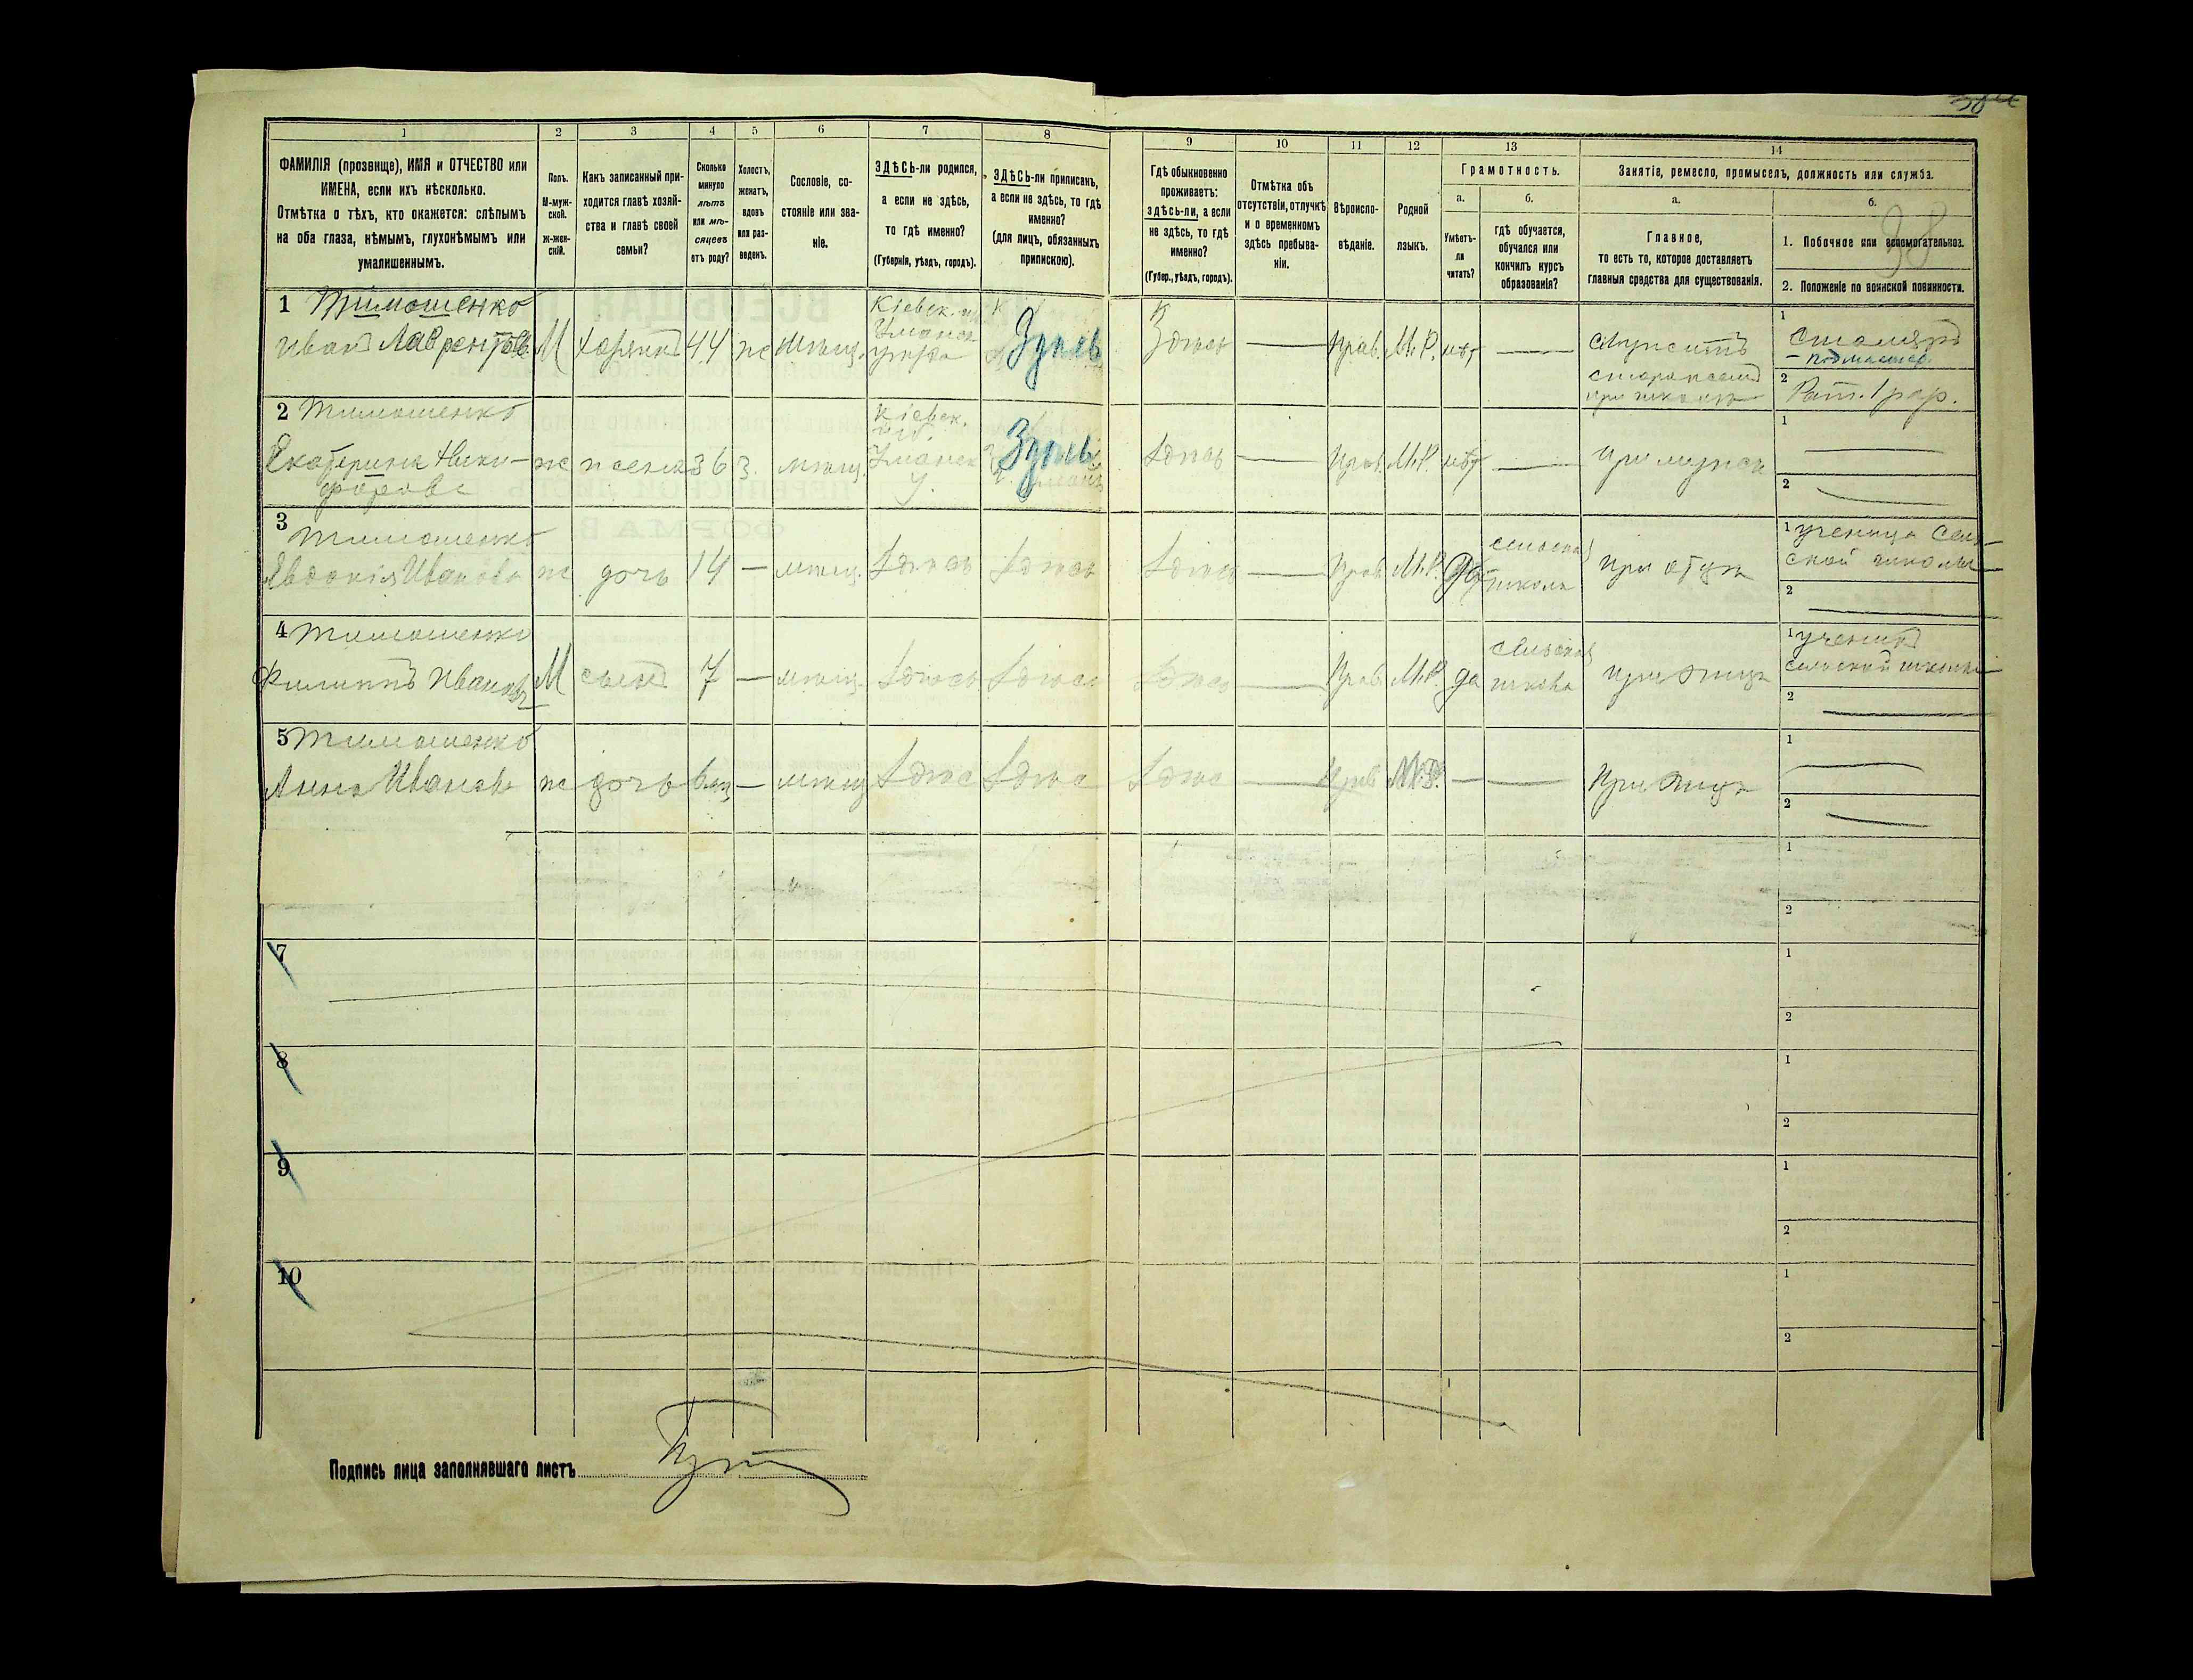 1 2 3 4 5 6 7 8 9 10 11 12 13 14
ФАМИЛІЯ (прозвище), ИМЯ и ОТЧЕСТВО или
ИМЕНА, если ихъ нѣсколько.
Отмѣтка о тѣхъ, кто окажется: слѣпымъ
на оба глаза, нѣмымъ, глухонѣмымъ или
умалишеннымъ.
Полъ.
М-муж-
ской.
Ж-жен-
скій.
Какъ записанный при-
ходится главѣ хозяй-
ства и главѣ своей
семьи?
Сколько
минуло
лѣтъ
или мѣ-
сяцевъ
отъ роду?
Холостъ,
женатъ,
вдовъ
или раз-
веденъ.
Сословіе, со-
стояніе или зва-
ніе.
ЗДѢСЬ-ли родился,
а если не здѣсь,
то гдѣ именно?
(Губернія, уѣздъ, городъ).
ЗДѢСЬ-ли приписанъ,
а если не здѣсь, то гдѣ
именно?
(для лицъ, обязанныхъ
припискою).
Гдѣ обыкновенно
проживаетъ:
здѣсь-ли, а если
не здѣсь, то гдѣ
именно?
(Губер., уѣздъ, городъ).
Отмѣтка объ
отсутствіи, отлучкѣ
и о временномъ
здѣсь пребыва-
ніи.
Вѣроиспо-
вѣданіе.
Родной
языкъ.
Грамотность.
а.
Умѣетъ-
ли
читать?
б.
гдѣ обучается,
обучался или
кончилъ курсъ
образованія?
Занятіе, ремесло, промыселъ, должность или служба.
а.
Главное,
то есть то, которое доставляетъ
главныя средства для существованія.
б.
98
1. Побочное или вспомогательное.
2. Положеніе по воинской повинности.
1 Тимошенко
Иванъ Лаврентьевъ М 44 ж мѣщ. Здѣсь — Прав. М.Р. нѣт —
Кіевск.
Уманск
уѣзда
Служитъ
1 Столяръ
2 Рат. 1 раз.
2 Тимошенко
Екатерина Ники-
форова ж жена 36 з. мѣщ. Здѣсь — Прав. М.Р. нѣт — При мужѣ
Кіевск.
Уманск
у.
1 —
2 —
3 Тимошенко
Евдокія Иванова ж дочь 14 — мѣщ. Здѣсь Здѣсь Здѣсь — Прав. М.Р. да При отцѣ
школа
1 ученица Сель-
ской школы
2 —
4 Тимошенко
Филиппъ Ивановъ М сынъ 7 — мѣщ. Здѣсь Здѣсь Здѣсь — Прав. М.Р. да школа При отцѣ
1 ученикъ
сельской школы
2 —
5 Тимошенко
Анна Иванова ж дочь — мѣщ Здѣс Здѣс Здѣс — Прав М.Р. — — При отцѣ
1 —
2 —
1
2
7
1
2
8
1
2
9
1
2
10
1
2
Подпись лица заполнявшаго листъ